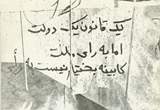 یک قانون یک دولت
اما به رای ملت
کابینه بختیار نیست